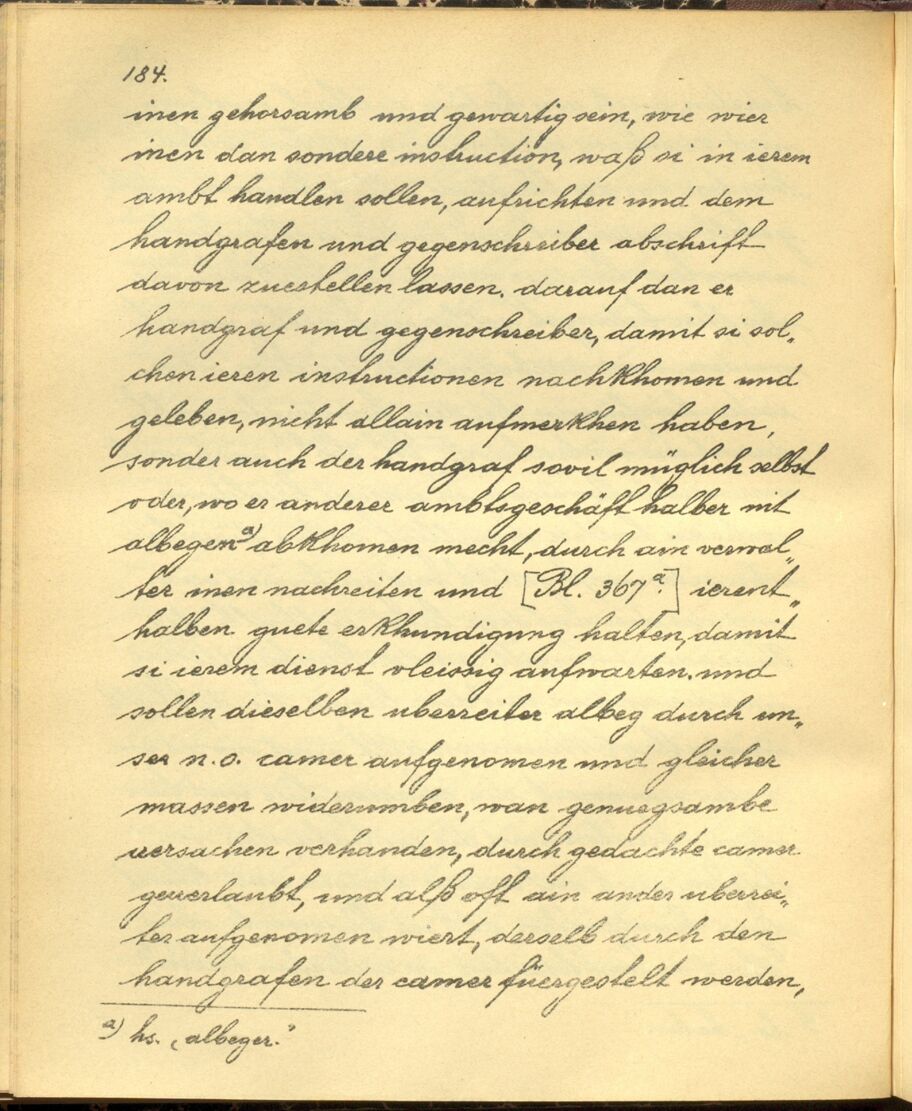 184.
inen gehorsamb und gewartig sein, wie wier
inen dan sondere instruction, waß si in ierem
ambt handlen sollen, aufrichten und dem
handgrafen und gegenschreiber abschrift
davon zuestellen lassen. darauf dan er
handgraf und gegenschreiber, damit si sol„
chen ieren instructionen nachkhomen und
geleben, nicht allain aufmerkhen haben,
sonder auch der handgraf sovil müglich selbst
oder, wo er anderer ambtsgeschäft halber nit
albegen a) abkhomen mecht, durch ain verwal„
ter inen nachreiten und [Bl. 367 a.] ierent„
halben guete erkhundigung halten, damit
si ierem dienst vleissig aufwarten. und
sollen dieselben uberreiter albeg durch un„
ser n.o. camer aufgenomen und gleicher
massen widerumben, wan genuegsambe
uersachen verhanden, durch gedachte camer
geuerlaubt, und alß oft ain ander uberrei„
ter aufgenomen wiert, derselb durch den
handgrafen der camer füergestelt werden,
a) hs. „albeger."